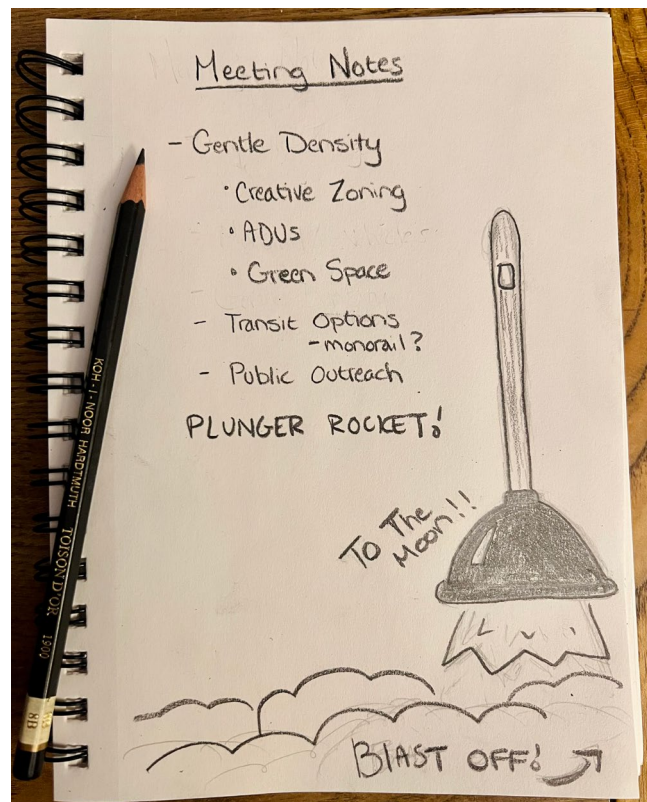 Meeting Notes
- Gentle Density
• Creative Zoning
• ADUs
• Green Space
- Transit Options
- monorail?
- Public Outreach
PLUNGER ROCKET!
To The
Moon!!
BlAST OFF!
KOH-I-NOOR HARDTMUTH TOISON D'OR 1900
8B